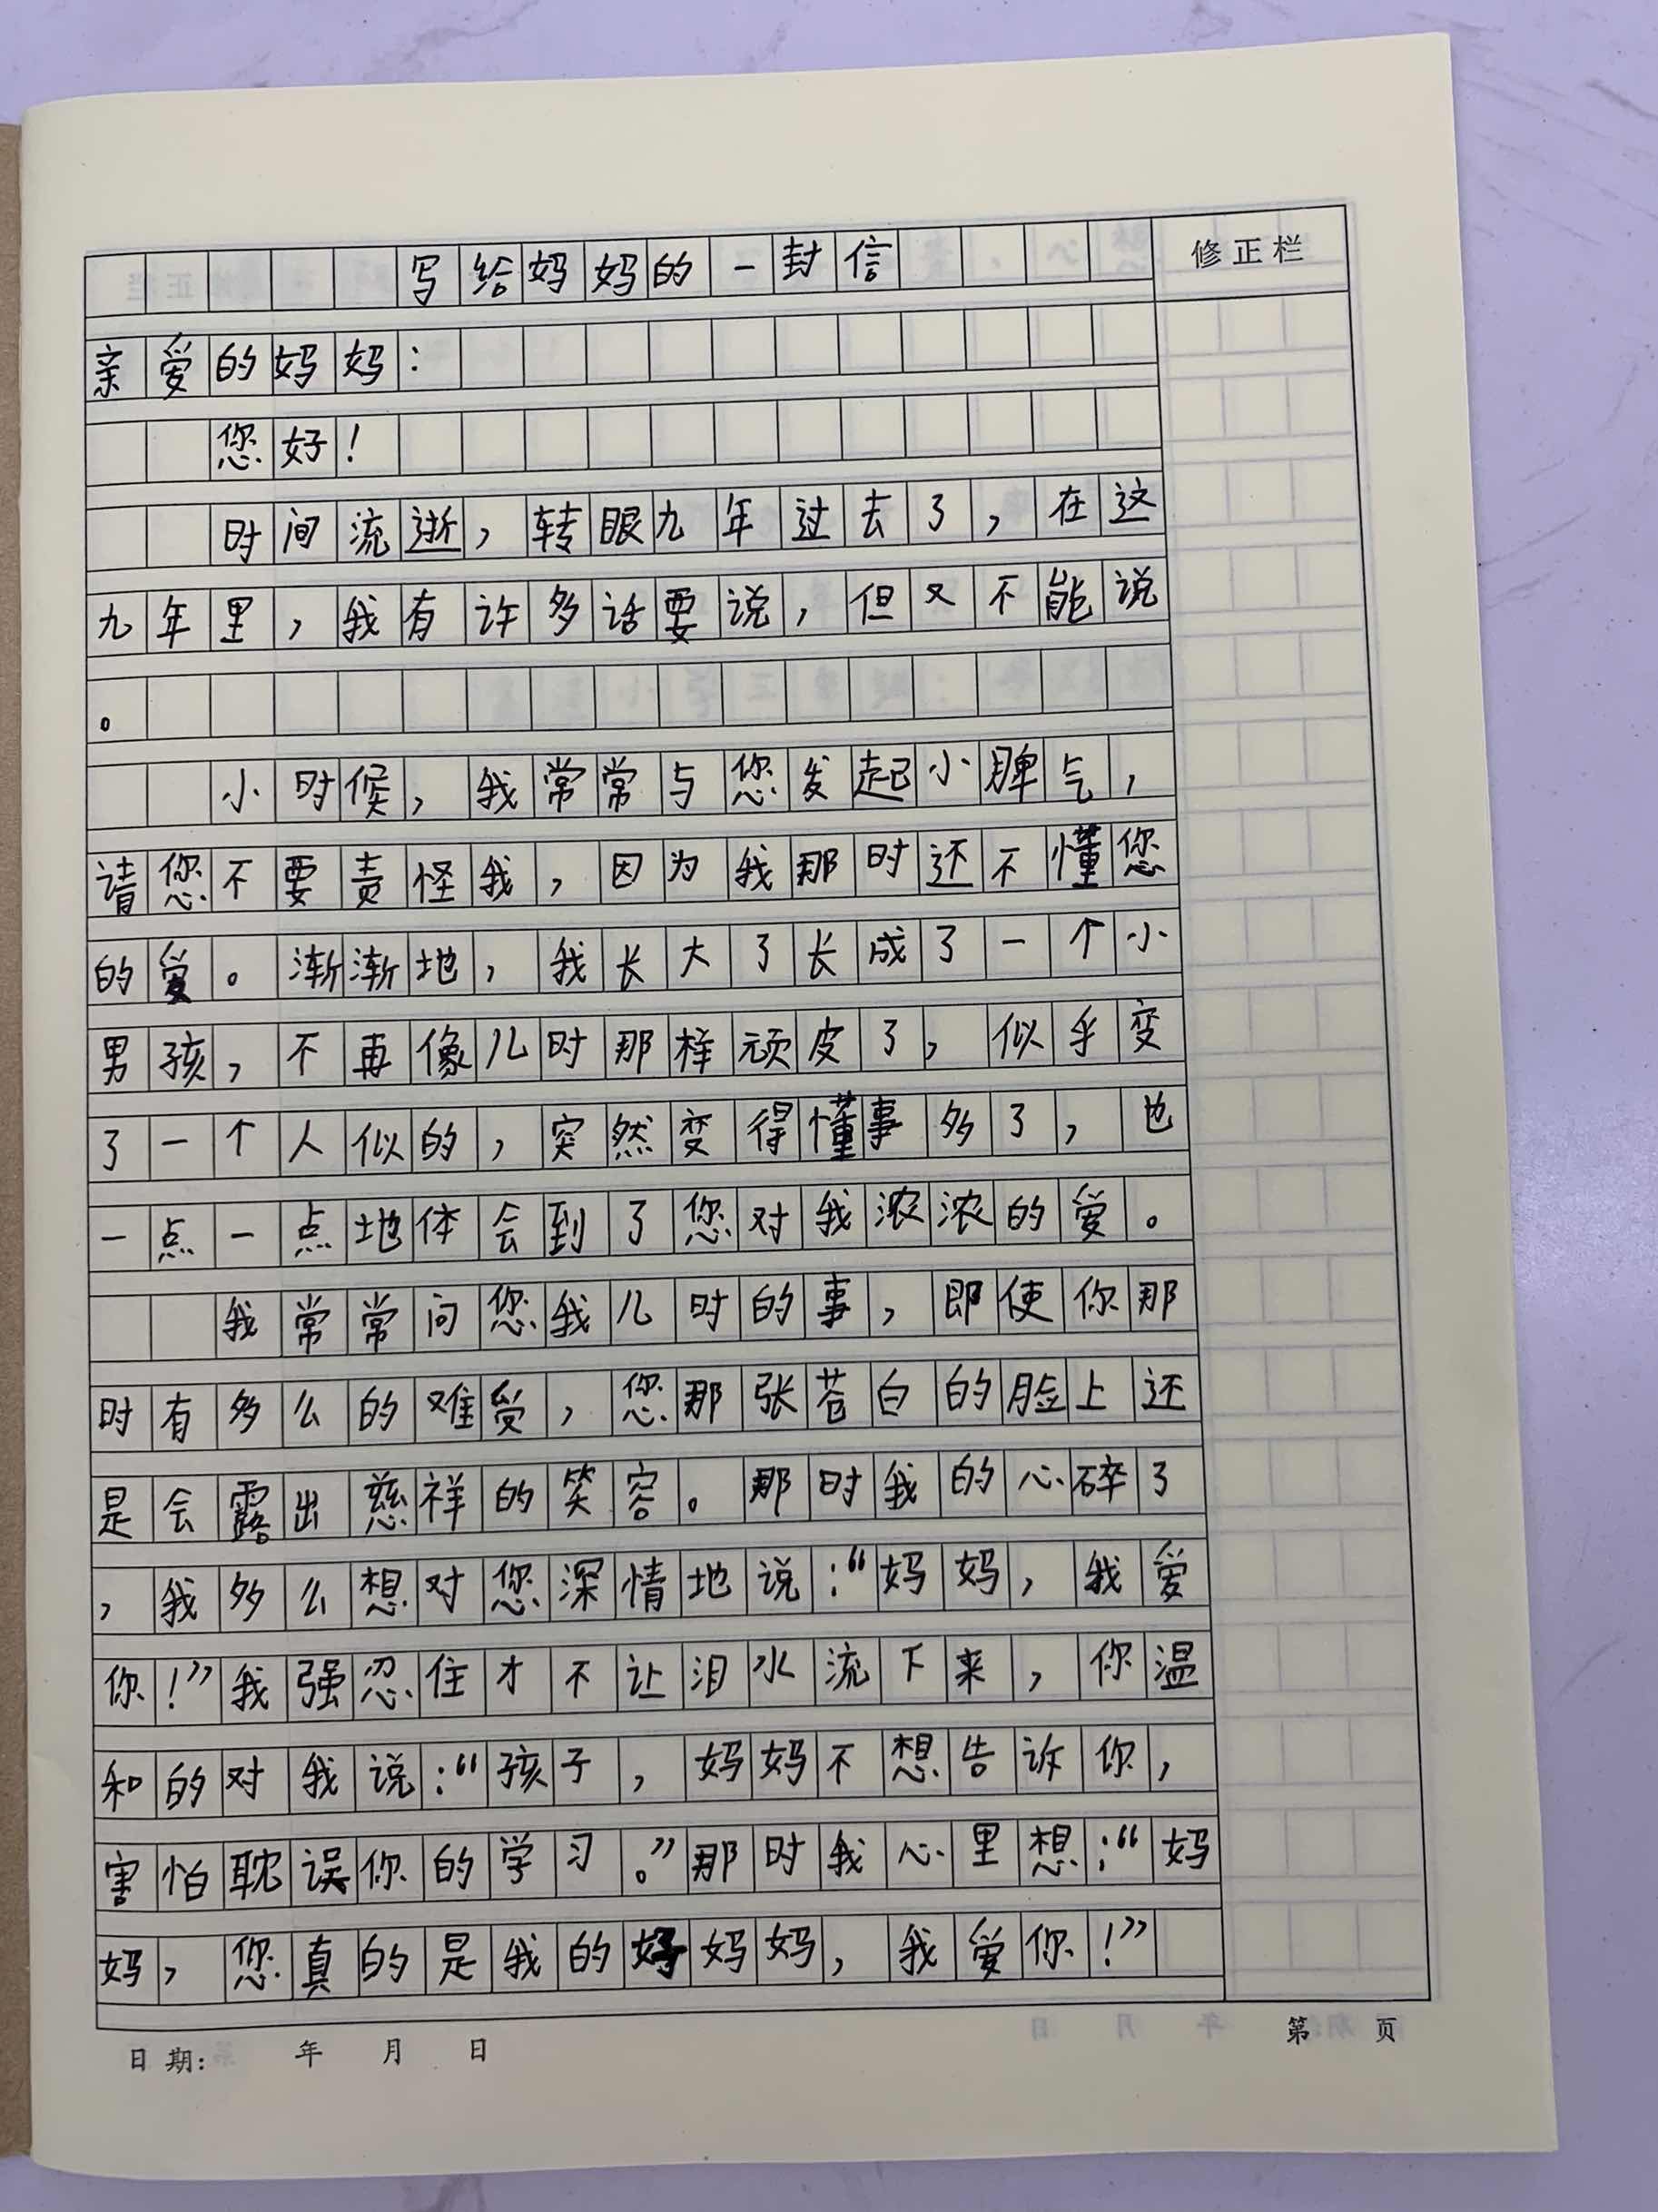 写给妈妈的一封信
修正栏
亲爱的妈妈：
您好！
时间流逝，转眼九年过去了，在这
九年里，我有许多话要说，但又不能说
。
小时候，我常常与您发起小脾气，
请您不要责怪我，因为我那时还不懂您
的爱。渐渐地，我长大了长成了一个小
男孩，不再像儿时那样顽皮了，似乎变
了一个人似的，突然变得懂事多了，也
一点一点地体会到了您对我浓浓的爱。
我常常问您我儿时的事，即使你那
时有多么的难受，您那张苍白的脸上还
是会露出慈祥的笑容。那时我的心碎了
，我多么想对您深情地说：“妈妈，我爱
你！”我强忍住才不让泪水流下来，你温
和的对我说：“孩子，妈妈不想告诉你，
害怕耽误你的学习。”那时我心里想：“妈
妈，您真的是我的好妈妈，我爱你！”
日期： 年 月 日
第 页